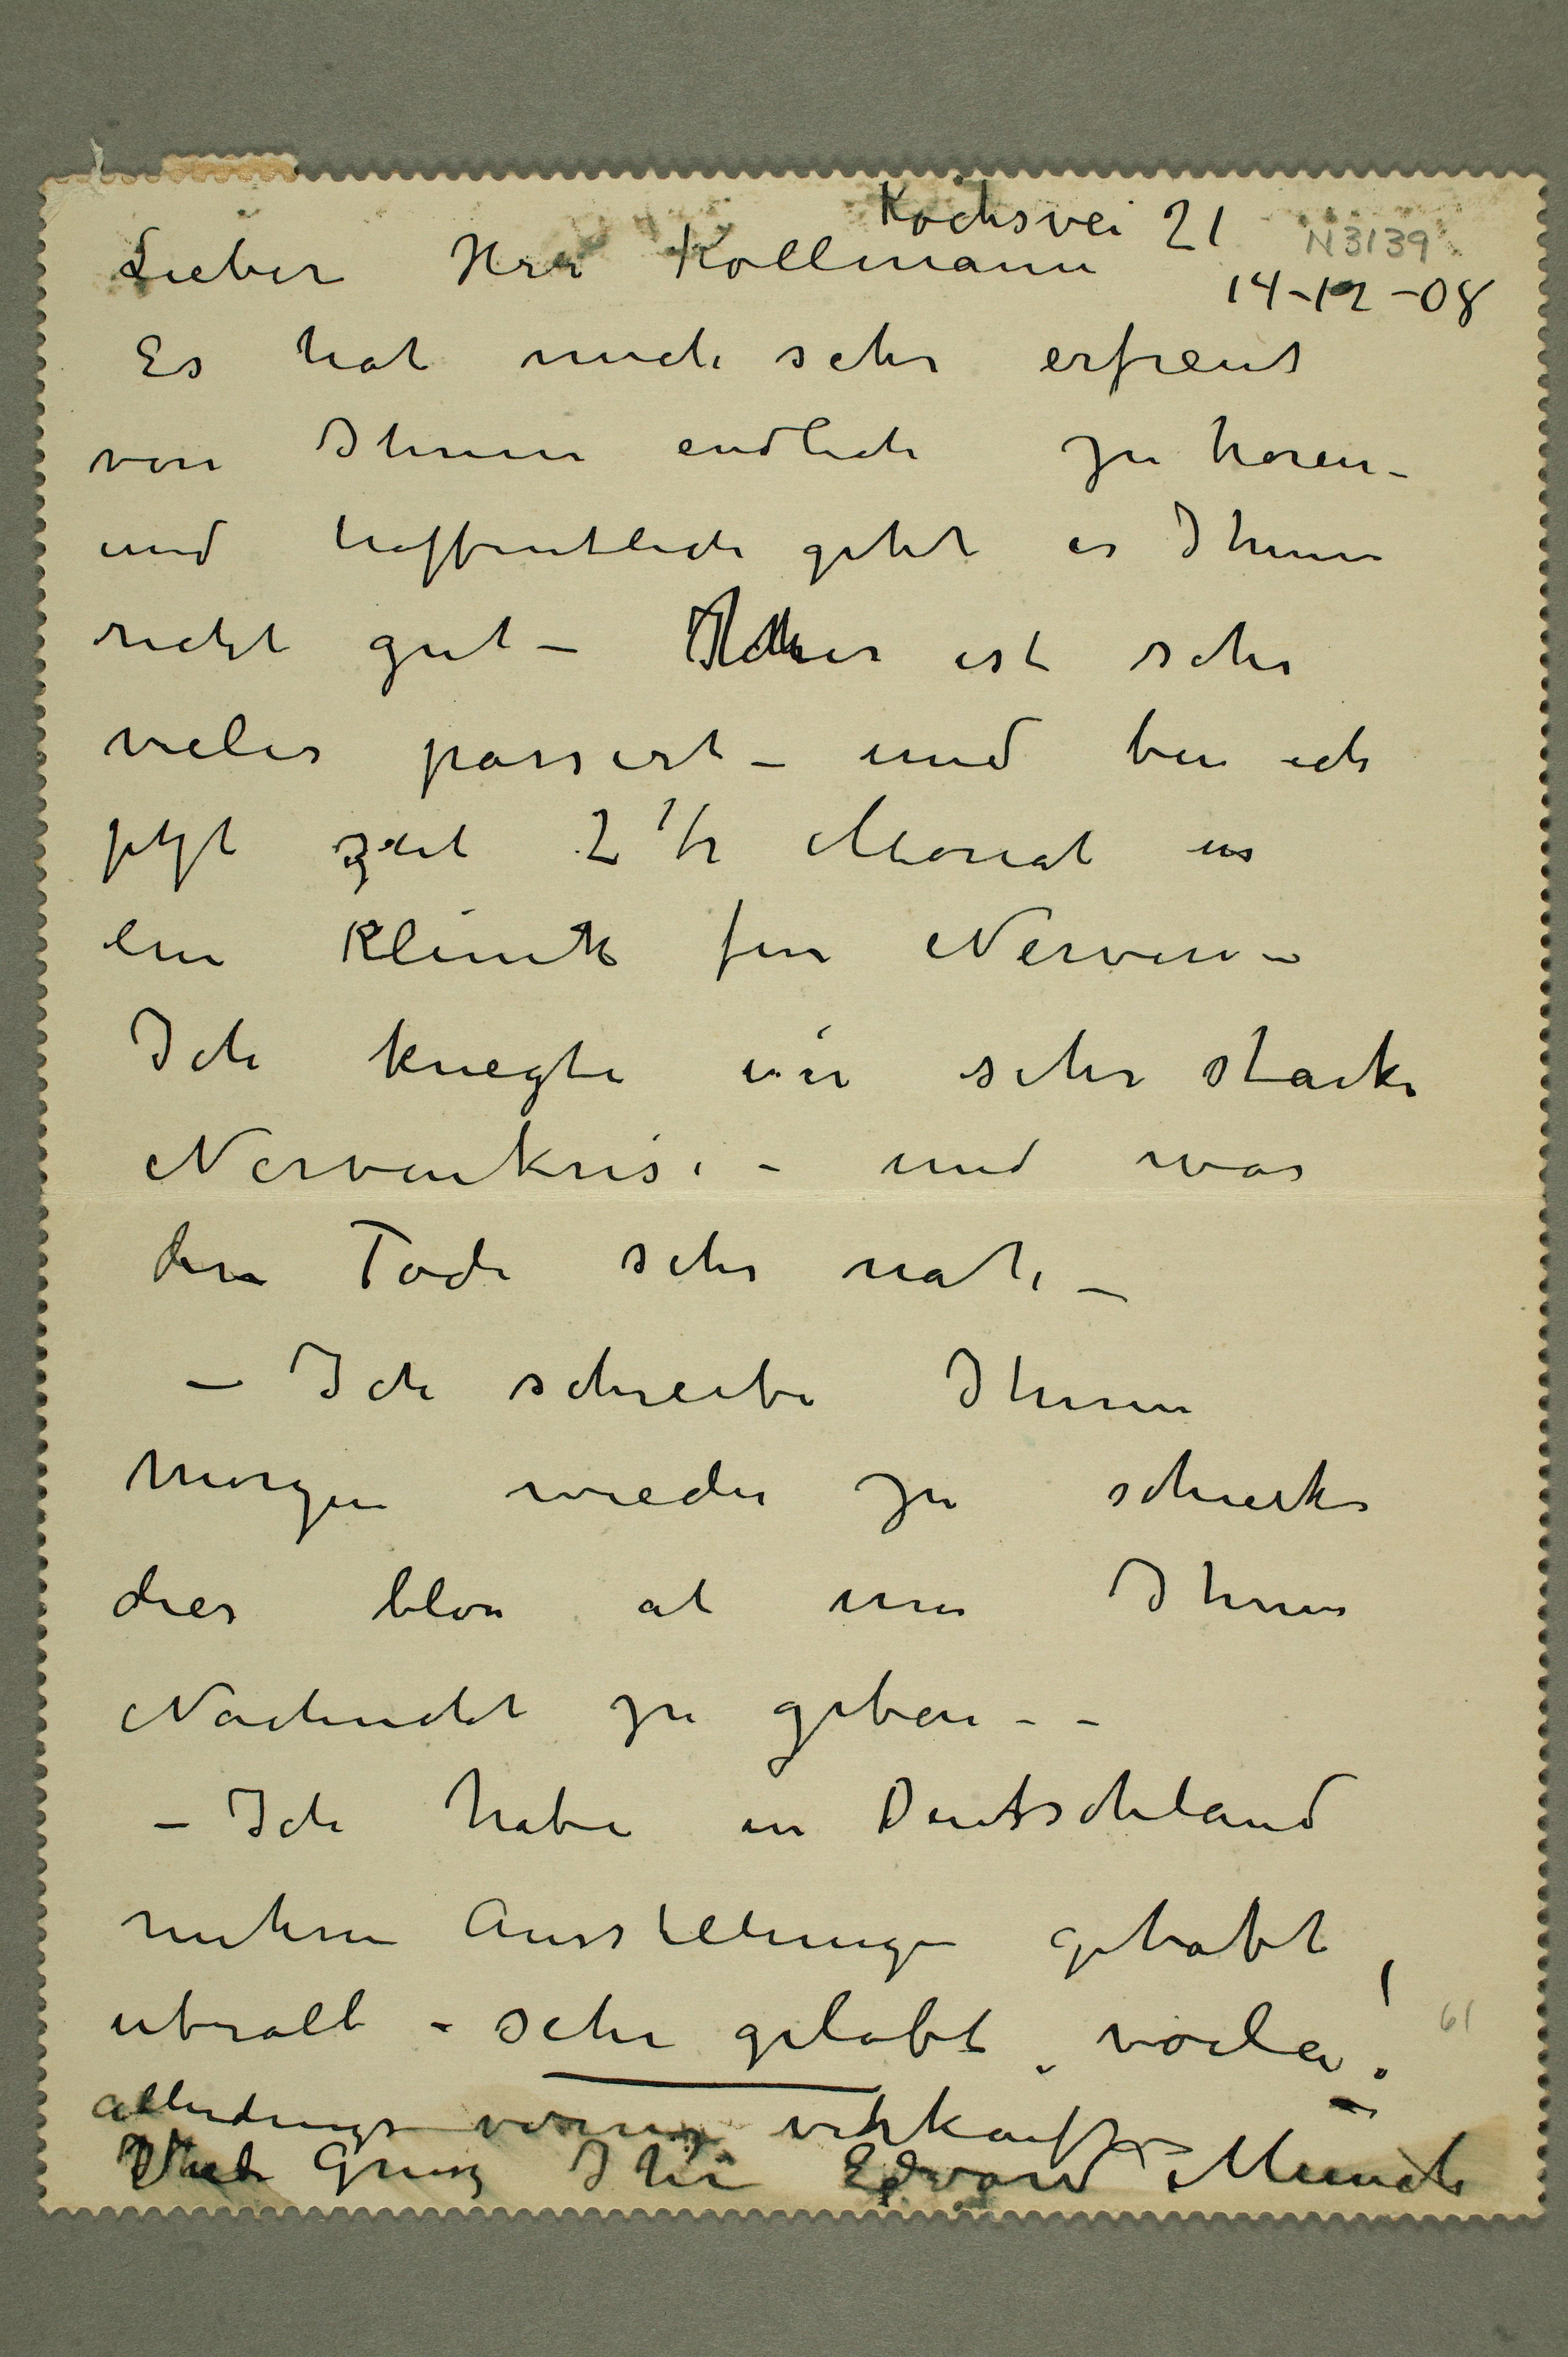 Kochsvei 21
N 3139
Lieber Herr Kollmann
14-12-08
Es hat mich sehr erfreut
von Ihnen endlich zu horen –
und hoffentlich geht es Ihnen
recht gut – Hier ist sehr
vieles passert – und bin ich
jetzt zeit 2 1/2 Monat in
ein Klinik fur Nerven –
Ich kriegte ein sehr starke
Nervenkrise – und war
den Tode sehr nahe –
– Ich schreibe Ihnen
morgen wieder zu
dies blos at um Ihnen
Nachricht zu geben – –
– Ich habe in Deutschland
mehren Ausstellungen gehabt,
uberall – sehr gelobt. voila!
61
allerdings wenig verkauft –
Gruss Ihr Edvard Munch